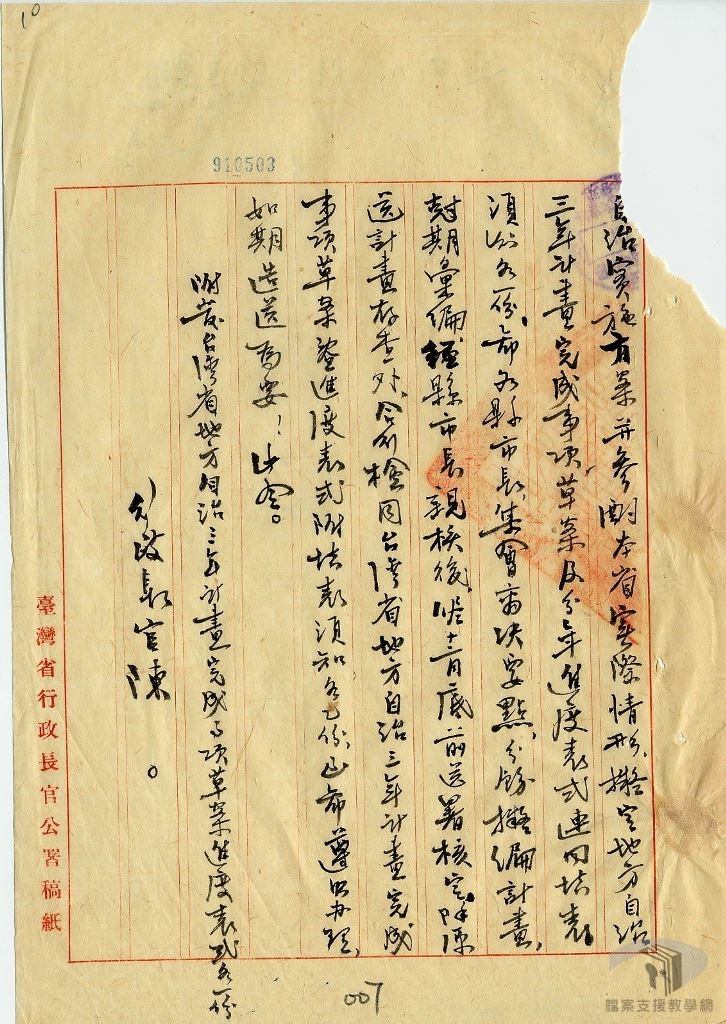 10
910503
自治實施方案并參酌本省實際情形,擬定地方自治
三年計畫完成事項草案及分年進度表式連同填表
須知各一份,希各縣市長集會商決要點,分飭擬編計畫,
尅期彙編經縣市長親核後,限十二月底前送署核定,除原
送計畫存查外,合行檢同台灣省地方自治三年計畫完成
事項草案暨進度表式附填表須知各乙份,電希遵照办理,
如期造送為要!此令。
附發台灣省地方自治三年計畫完成事項草案進度表式各一份
行政長官陳。
臺灣省行政長官公署稿紙
007
檔案支援教學網